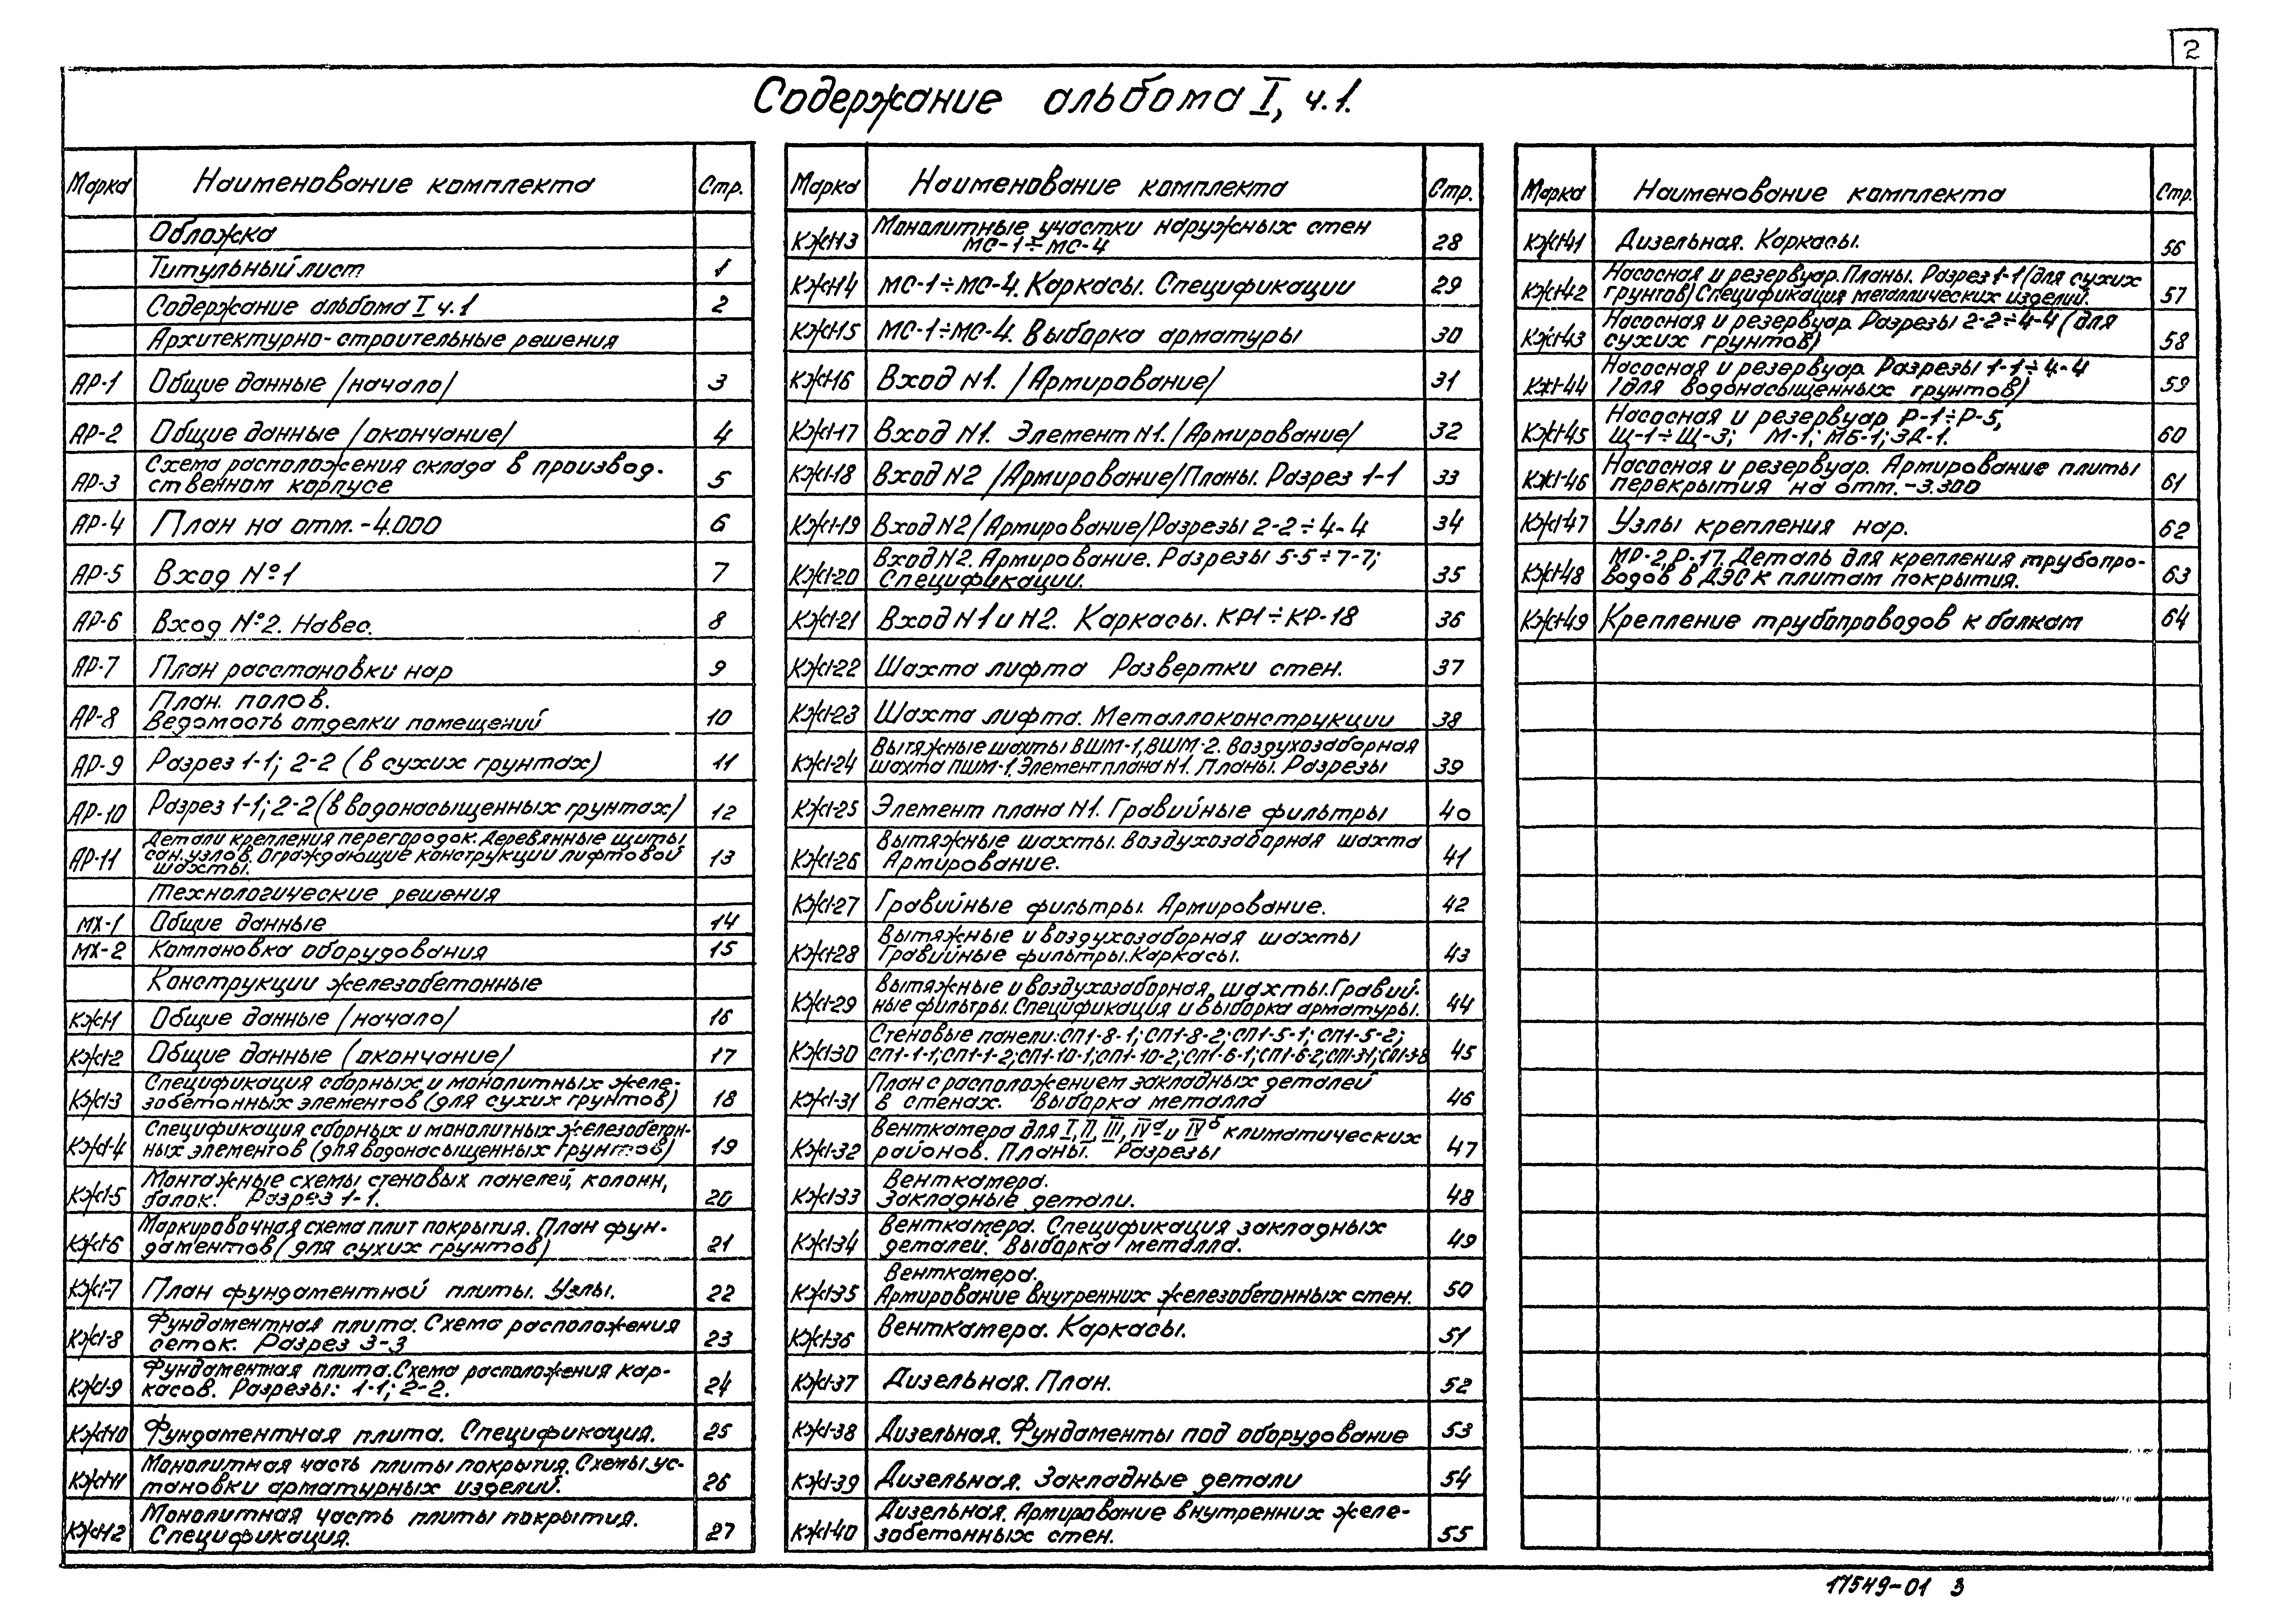 2
Содержание альбома I, ч.1.
Марка Наименование комплекта Стр.
Обложка
Титульный лист 1
Содержание альбома I ч.1 2
Архитектурно-строительные решения
АР-1 Общие данные /начало/ 3
АР-2 Общие данные /окончание/ 4
АР-3 Схема расположения склада в производ-
ственном корпусе 5
АР-4 План на отм.-4.000 6
АР-5 Вход №1 7
АР-6 Вход №2. Навес. 8
АР-7 План расстановки нар 9
АР-8 План полов.
Ведомость отделки помещений 10
АР-9 Разрез 1-1; 2-2 (в сухих грунтах) 11
АР-10 Разрез 1-1; 2-2 (в водонасыщенных грунтах) 12
АР-11 Детали крепления перегородок. Деревянные щиты
сан.узлов. Ограждающие конструкции лифтовой
шахты. 13
Технологические решения
МХ-1 Общие данные 14
МХ-2 Компановка оборудования 15
Конструкции железобетонные
КЖ1-1 Общие данные /начало/ 16
КЖ1-2 Общие данные (окончание) 17
КЖ1-3 Спецификация сборных и монолитных желе-
зобетонных элементов (для сухих грунтов) 18
КЖ1-4 Спецификация сборных и монолитных железобетон-
ных элементов (для водонасыщенных грунтов) 19
КЖ1-5 Монтажные схемы стеновых панелей, колонн,
балок. Разрез 1-1. 20
КЖ1-6 Маркировочная схема плит покрытия. План фун-
даментов (для сухих грунтов) 21
КЖ1-7 План фундаментной плиты. Узлы. 22
КЖ1-8 Фундаментная плита. Схема расположения
сеток. Разрез 3-3 23
КЖ1-9 Фундаментная плита. Схема расположения кар-
касов. Разрезы: 1-1; 2-2. 24
КЖ1-10 Фундаментная плита. Спецификация. 25
КЖ1-11 Монолитная часть плиты покрытия. Схемы ус-
тановки арматурных изделий. 26
КЖ1-12 Монолитная часть плиты покрытия.
Спецификация. 27
Марка Наименование комплекта Стр.
КЖ1-13 Монолитные участки наружных стен
МС-1÷МС-4 28
КЖ1-14 МС-1÷МС-4. Каркасы. Спецификации 29
КЖ1-15 МС-1÷МС-4. Выборка арматуры 30
КЖ1-16 Вход N1. /Армирование/ 31
КЖ1-17 Вход N1. Элемент N1. /Армирование/ 32
КЖ1-18 Вход N2 /Армирование/ Планы. Разрез 1-1 33
КЖ1-19 Вход N2 /Армирование/ Разрезы 2-2÷4-4 34
КЖ1-20 Вход N2. Армирование. Разрезы 5-5÷7-7;
Спецификации. 35
КЖ1-21 Вход N1 и N2. Каркасы. КР1÷КР-18 36
КЖ1-22 Шахта лифта Развертки стен. 37
КЖ1-23 Шахта лифта. Металлоконструкции 38
КЖ1-24 Вытяжные шахты ВШМ-1, ВШМ-2. Воздухозаборная
шахта ПШМ-1. Элемент плана N1. Планы. Разрезы 39
КЖ1-25 Элемент плана N1. Гравийные фильтры 40
КЖ1-26 Вытяжные шахты. Воздухозаборная шахта
Армирование. 41
КЖ1-27 Гравийные фильтры. Армирование. 42
КЖ1-28 Вытяжные и воздухозаборная шахты
Гравийные фильтры. Каркасы. 43
КЖ1-29 Вытяжные и воздухозаборная шахты. Гравий-
ные фильтры. Спецификация и выборка арматуры. 44
КЖ1-30 Стеновые панели: СП1-8-1; СП1-8-2; СП1-5-1; СП1-5-2;
СП1-1-1; СП1-1-2; СП1-10-1; СП1-10-2; СП1-6-1; СП1-6-2; СП1-3-1; СП1-3-8 45
КЖ1-31 План с расположением закладных деталей
в стенах. Выборка металла 46
КЖ1-32 Венткамера для I, II, III, IVа и IVб климатических
районов. Планы. Разрезы 47
КЖ1-33 Венткамера.
Закладные детали. 48
КЖ1-34 Венткамера. Спецификация закладных
деталей. Выборка металла. 49
КЖ1-35 Венткамера.
Армирование внутренних железобетонных стен. 50
КЖ1-36 Венткамера. Каркасы. 51
КЖ1-37 Дизельная. План. 52
КЖ1-38 Дизельная. Фундаменты под оборудование 53
КЖ1-39 Дизельная. Закладные детали 54
КЖ1-40 Дизельная. Армирование внутренних желе-
зобетонных стен. 55
Марка Наименование комплекта Стр.
КЖ1-41 Дизельная. Каркасы. 56
КЖ1-42 Насосная и резервуар. Планы. Разрез 1-1 (для сухих
грунтов) Спецификация металлических изделий. 57
КЖ1-43 Насосная и резервуар. Разрезы 2-2÷4-4 (для
сухих грунтов) 58
КЖ1-44 Насосная и резервуар. Разрезы 1-1÷4-4
/для водонасыщенных грунтов) 59
КЖ1-45 Насосная и резервуар Р-1÷Р-5,
Щ-1÷Щ-3; М-1; МБ-1; ЗД-1. 60
КЖ1-46 Насосная и резервуар. Армирование плиты
перекрытия на отм.-3.300 61
КЖ1-47 Узлы крепления нар. 62
КЖ1-48 МР-2, Р-17. Деталь для крепления трубопро-
водов в ДЭС к плитам покрытия. 63
КЖ1-49 Крепление трубопроводов к балкам 64
17549-01 3